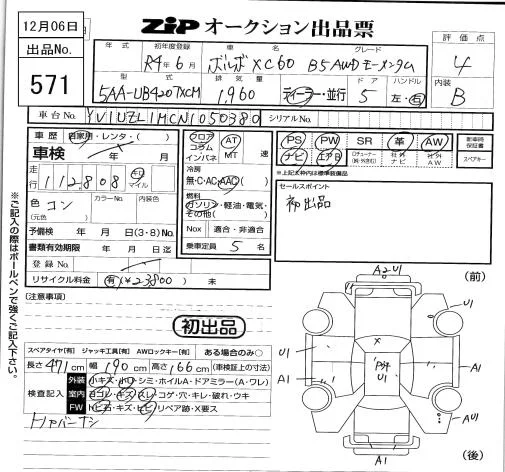 12月06日
ZIP オークション出品票
出品No.
571
年式
初年度登録
車名
グレード
評価点
R4年6月
ボルボ XC60
B5 AWD モーメンタム
4
型式
排気量
ドア
ハンドル
内装
5AA-UB420TXCM
1,960
ディーラー・並行
5
左・右
B
車台No.
YV1UZL1MCN1050380
シリアルNo.
車歴
自家用・レンタ・( )
フロア
コラム
インパネ
AT
MT
速
PS
PW
SR
革
AW
新車時
保証書
ナビ
エアB
社外
ナビ
社外
AW
スペアキー
車検
年
月
※上記太枠内は標準装備品
走行
112,808
キロ
マイル
冷房
無・C・AC・AAC( )
セールスポイント
初出品
色
コン
(元色 )
カラーNo.
内装色
燃料
ガソリン・軽油・電気・
その他( )
予備検
年 月 日(3・8)No.
Nox
適合・非適合
書類有効期限
年 月 日迄
乗車定員
5
名
登録No.
リサイクル料金
有(¥23800)
未
(注意事項)
初出品
スペアタイヤ[有]
ジャッキ工具[有]
AWロックキー[有]
ある場合のみ○
長さ471cm
幅190cm
高さ166cm
(車検証上の寸法)
検査記入
外装
小キズ・小凹・シミ・ホイルA・ドアミラー(A・ワレ)
室内
ヨゴレ・キズ・スレ・コゲ・穴・キレ・破れ・ウキ
FW
トビ石・キズ・ヒビ・リペア跡・X要ス
トノカバーナシ
※ご記入の際はボールペンで強くご記入下さい。
(前)
A2 U1
U1
U1
X
A1
A1
U1
AU1
A1
(後)